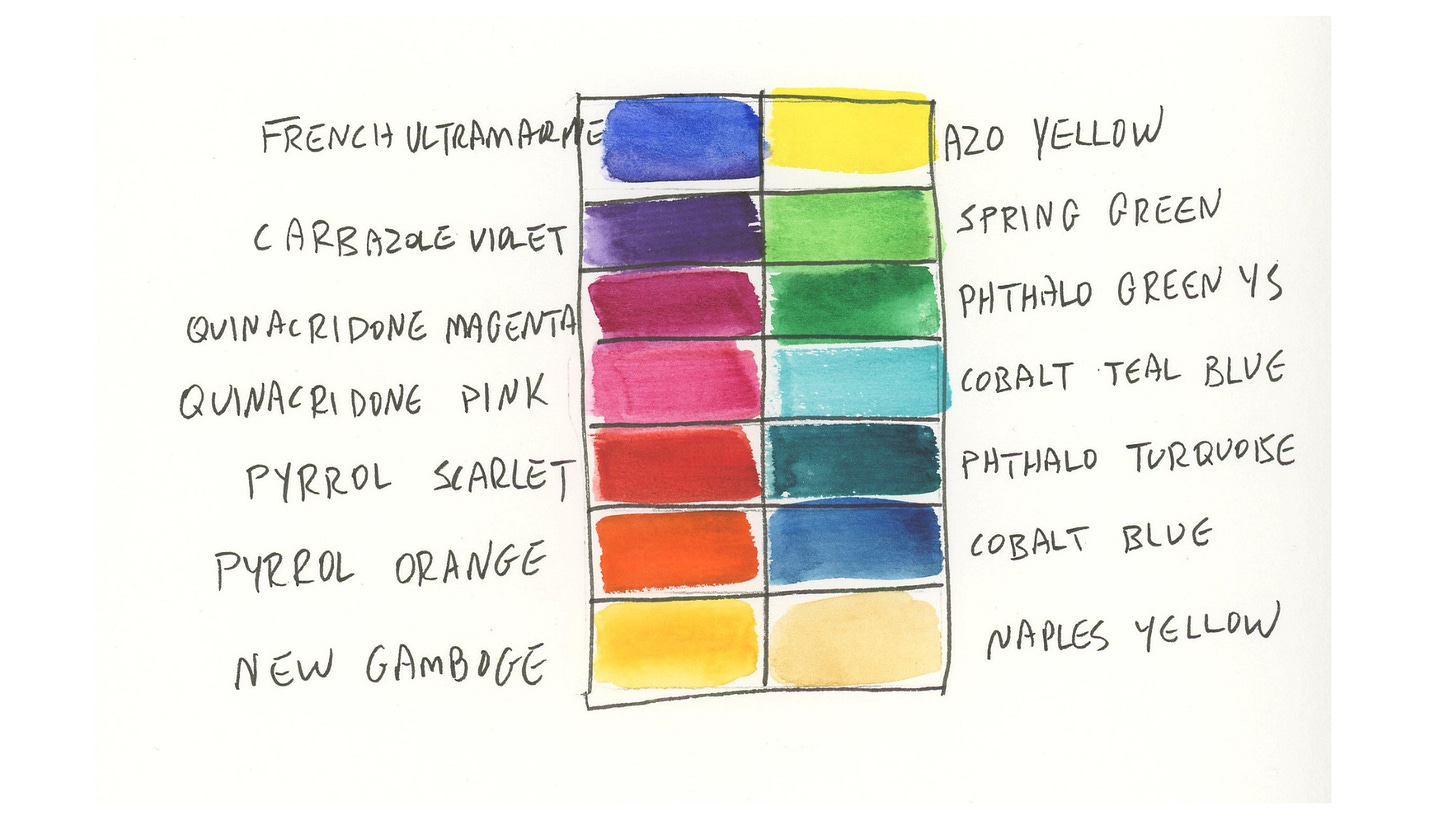 FRENCH ULTRAMARINE
AZO YELLOW
CARBAZOLE VIOLET
SPRING GREEN
QUINACRIDONE MAGENTA
PHTHALO GREEN YS
QUINACRIDONE PINK
COBALT TEAL BLUE
PYRROL SCARLET
PHTHALO TURQUOISE
PYRROL ORANGE
COBALT BLUE
NEW GAMBOGE
NAPLES YELLOW